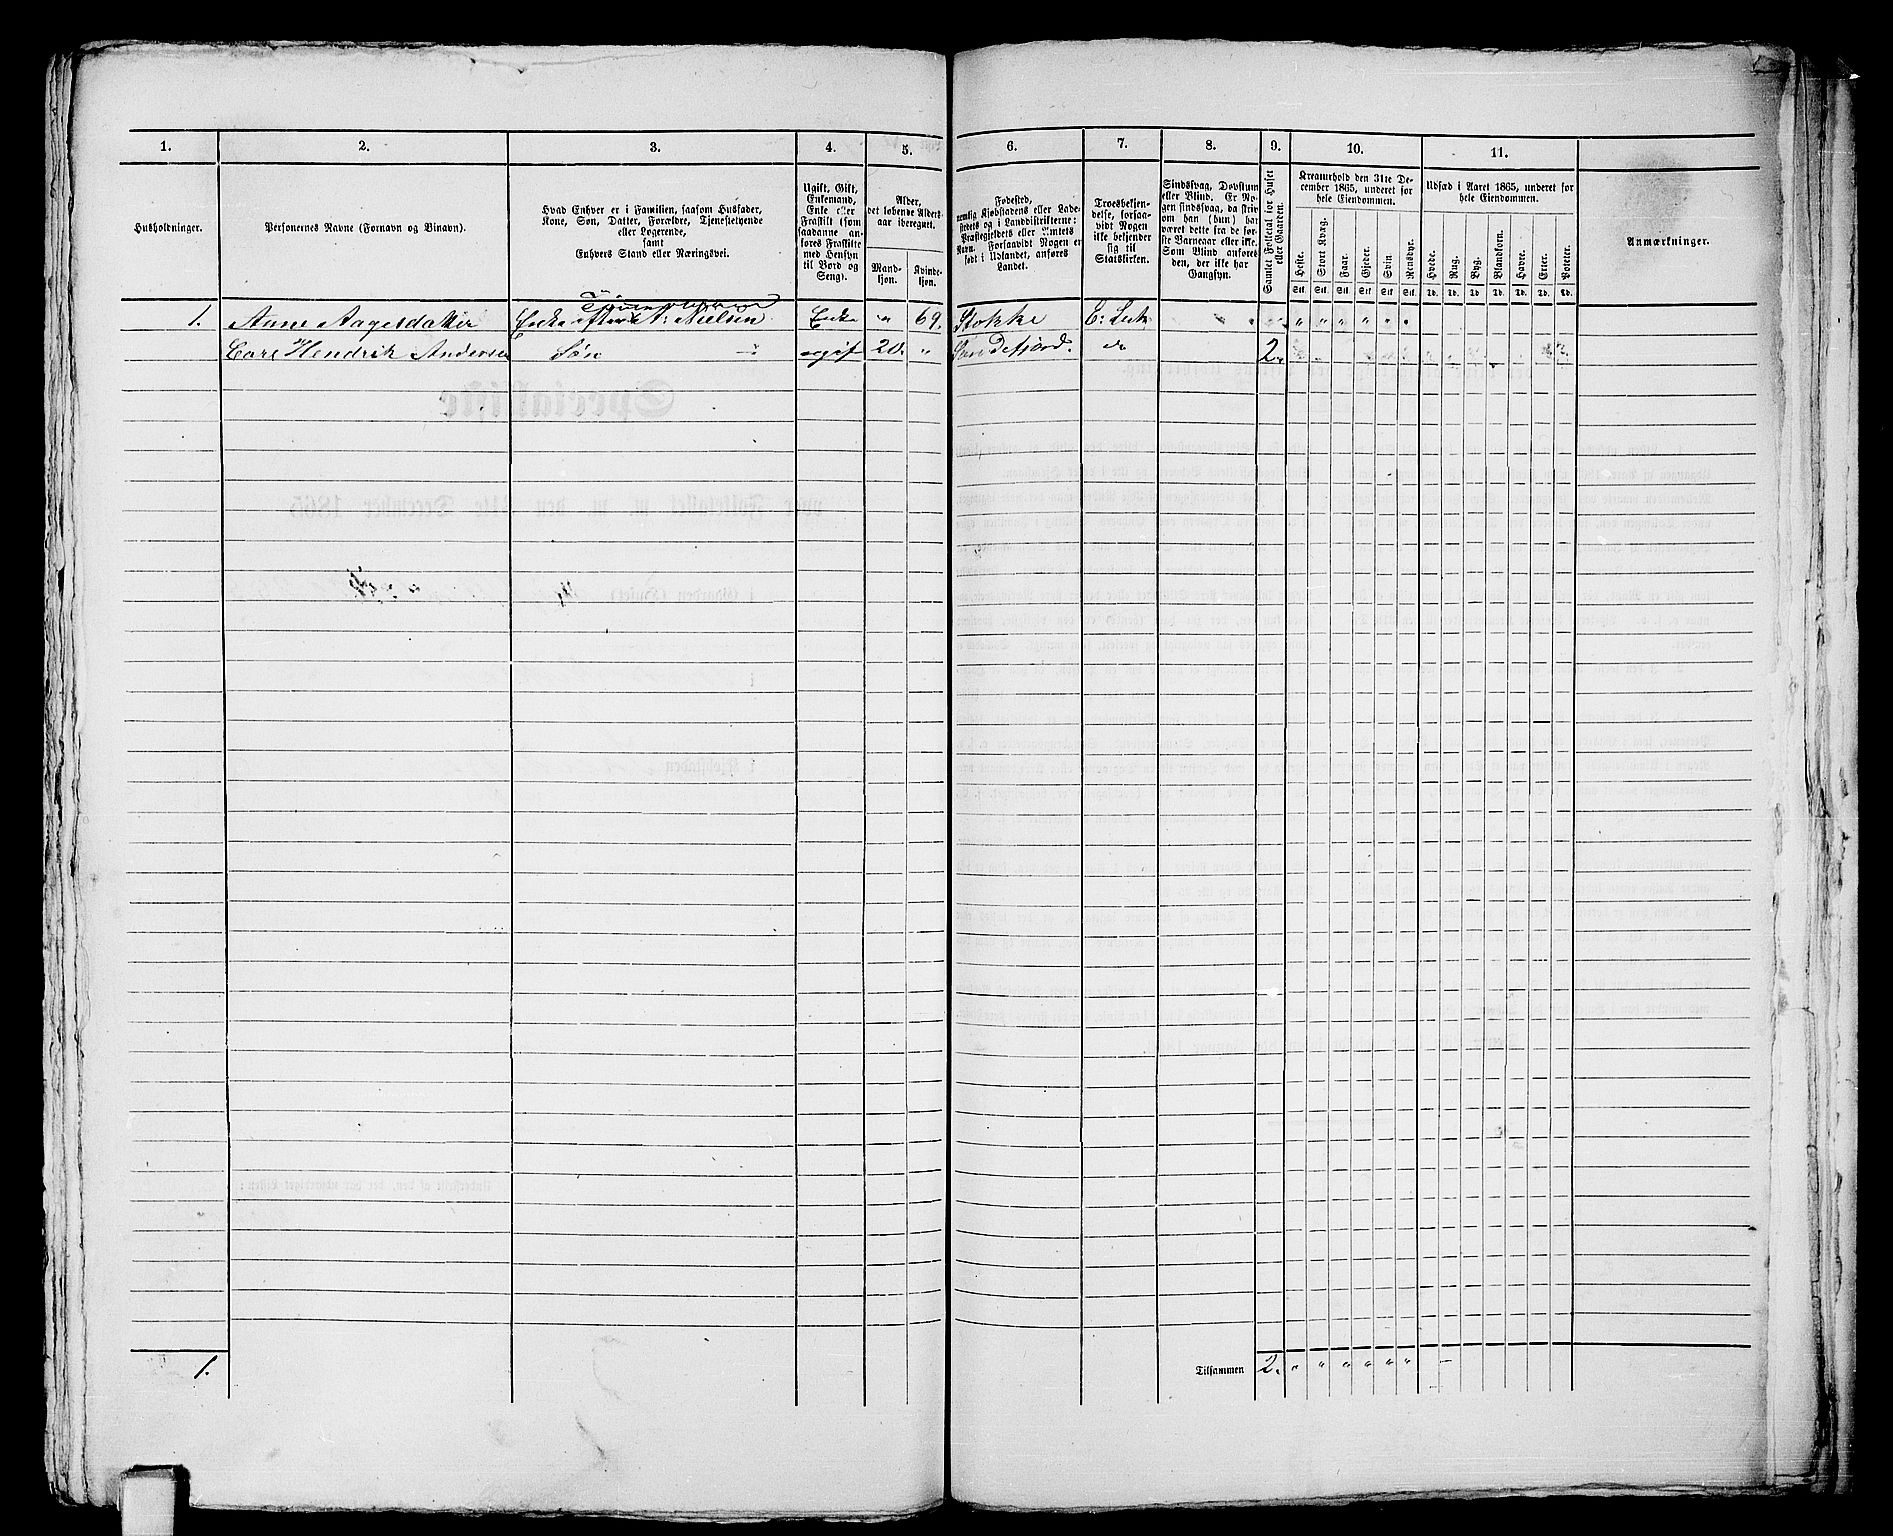 1. 2. 3. 4. 5. 6. 7. 8. 9. 10. 11.
Husholdninger.
Personernes Navne (Fornavn og Binavn).
Hvad Enhver er i Familien, saasom Husfader,
Kone, Søn, Datter, Forældre, Tjenestetyende
eller Logerende,
samt
Enhvers Stand eller Næringsvei.
Ugift, Gift,
Enkemand,
Enke eller
Fraskilt (som
saadanne an-
føres Fraskilte
med Hensyn
til Bord og
Seng).
Alder,
det løbende Alders-
aar iberegnet.
Mand-
kjøn.
Kvinde-
kjøn.
Fødested,
nemlig Kjøbstadens eller Lade-
stedets og i Landdistrikterne:
Præstegjeldets eller Amtets
Navn. Forsaavidt Nogen er
født i Udlandet, anføres
Landet.
Troesbekjen-
delse, forsaa-
vidt Nogen
ikke bekjender
sig til
Statskirken.
Sindssvag, Døvstum
eller Blind. Er No-
gen sindssvag, da skriv
om han (hun) har
været dette fra de før-
ste Barneaar eller ikke.
Som Blind anføres
den, der ikke har
Gangsyn.
Samlet Folketal for Huset
eller Gaarden.
Kreaturhold den 31te De-
cember 1865, underet for
hele Eiendommen.
Heste. Stort Kvæg. Faar. Gjeder. Svin. Rensdyr.
Stk. Stk. Stk. Stk. Stk. Stk.
Udsæd i Aaret 1865, underet for
hele Eiendommen.
Hvede. Rug. Byg. Blandkorn. Havre. Erter. Poteter.
Td. Td. Td. Td. Td. Td. Td.
Anmærkninger.
1. Anne Aagesdatter Enke efter A: Nielsen Enke " 69. Stokke E: Luth
Carl Hendrik Andersen Søn ugift 20. " Sandefjord. do 2.
1. Tilsammen 2. " " " " " "